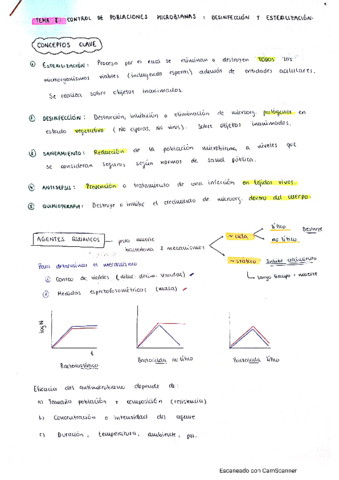 TEMA 8: CONTROL DE POBLACIONES MICROBIANAS: DESINFECCIÓN Y ESTERILIZACIÓN.
CONCEPTOS CLAVE
ESTERILIZACIÓN: Proceso por el cual se eliminan o destruyen TODOS los
microorganismos viables (incluyendo esporas) además de entidades acelulares.
Se realiza sobre objetos inanimados.
DESINFECCIÓN: Destrucción, inhibición o eliminación de microorg. patógenos en
estado vegetativo (No esporas, no virus). Sobre objetos inanimados.
SANEAMIENTO: Reducción de la población microbiana a niveles que
se consideran seguros, según normas de salud pública.
ANTISEPSIS: Prevención o tratamiento de una infección en tejidos vivos.
QUIMIOTERAPIA: Destruye o inhibe el crecimiento de microorg. dentro del cuerpo.
AGENTES QUÍMICOS
para muerte
bacteriana 2 mecanismos
~ cida
lítico
no lítico
Destruye
~ stático
Inhibe crecimiento
largo tiempo = muerte
Para determinar el mecanismo
① Conteo de viables
② Medidas espectrofotométricas (masa)
log N
t
Bacteriostático
Bactericida no lítico
Bactericida lítico
Eficacia del antimicrobiano depende de:
a) Tamaño población + composición (resistencia)
b) Concentración o intensidad del agente
c) Duración, temperatura, ambiente, pH.
Escaneado con CamScanner